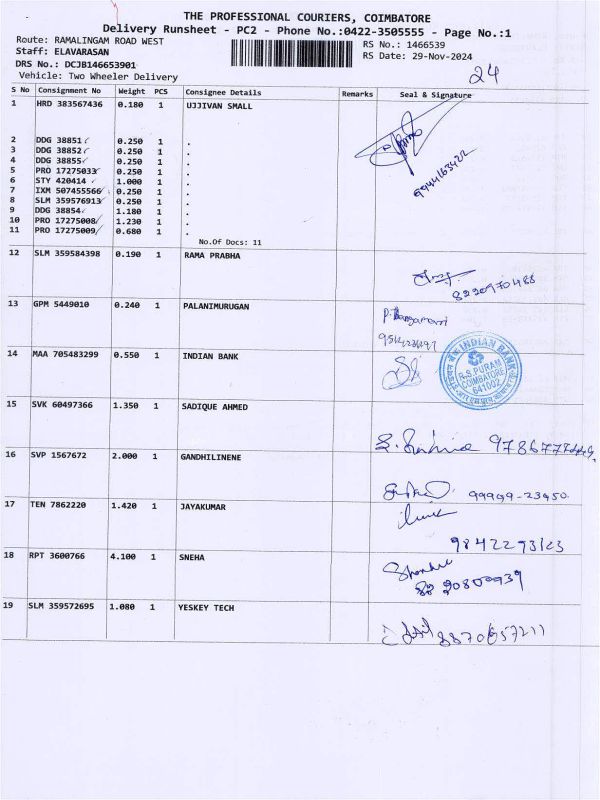 THE PROFESSIONAL COURIERS, COIMBATORE
Delivery Runsheet - PC2 - Phone No.:0422-3505555 - Page No.:1
Route: RAMALINGAM ROAD WEST RS No.: 1466539
Staff: ELAVARASAN RS Date: 29-Nov-2024
DRS No.: DCJB146653901
Vehicle: Two Wheeler Delivery 24
S No Consignment No Weight PCS Consignee Details Remarks Seal & Signature
1 HRD 383567436 0.180 1 UJJIVAN SMALL
2 DDG 38851 0.250 1 .
3 DDG 38852 0.250 1 .
4 DDG 38855 0.250 1 .
5 PRO 17275033 0.250 1 .
6 STY 420414 1.000 1 .
7 IXM 507455566 0.250 1 .
8 SLM 359576913 0.250 1 .
9 DDG 38854 1.180 1 .
10 PRO 17275008 1.230 1 .
11 PRO 17275009 0.680 1 .
9944163422
No.Of Docs: 11
12 SLM 359584398 0.190 1 RAMA PRABHA
8220970488
13 GPM 5449010 0.240 1 PALANIMURUGAN
14 MAA 705483299 0.550 1 INDIAN BANK
INDIAN BANK
R.S.PURAM
COIMBATORE
641002
15 SVK 60497366 1.350 1 SADIQUE AHMED
16 SVP 1567672 2.000 1 GANDHILINENE
99999-23950
17 TEN 7862220 1.420 1 JAYAKUMAR
18 RPT 3600766 4.100 1 SNEHA
19 SLM 359572695 1.080 1 YESKEY TECH
8870657211